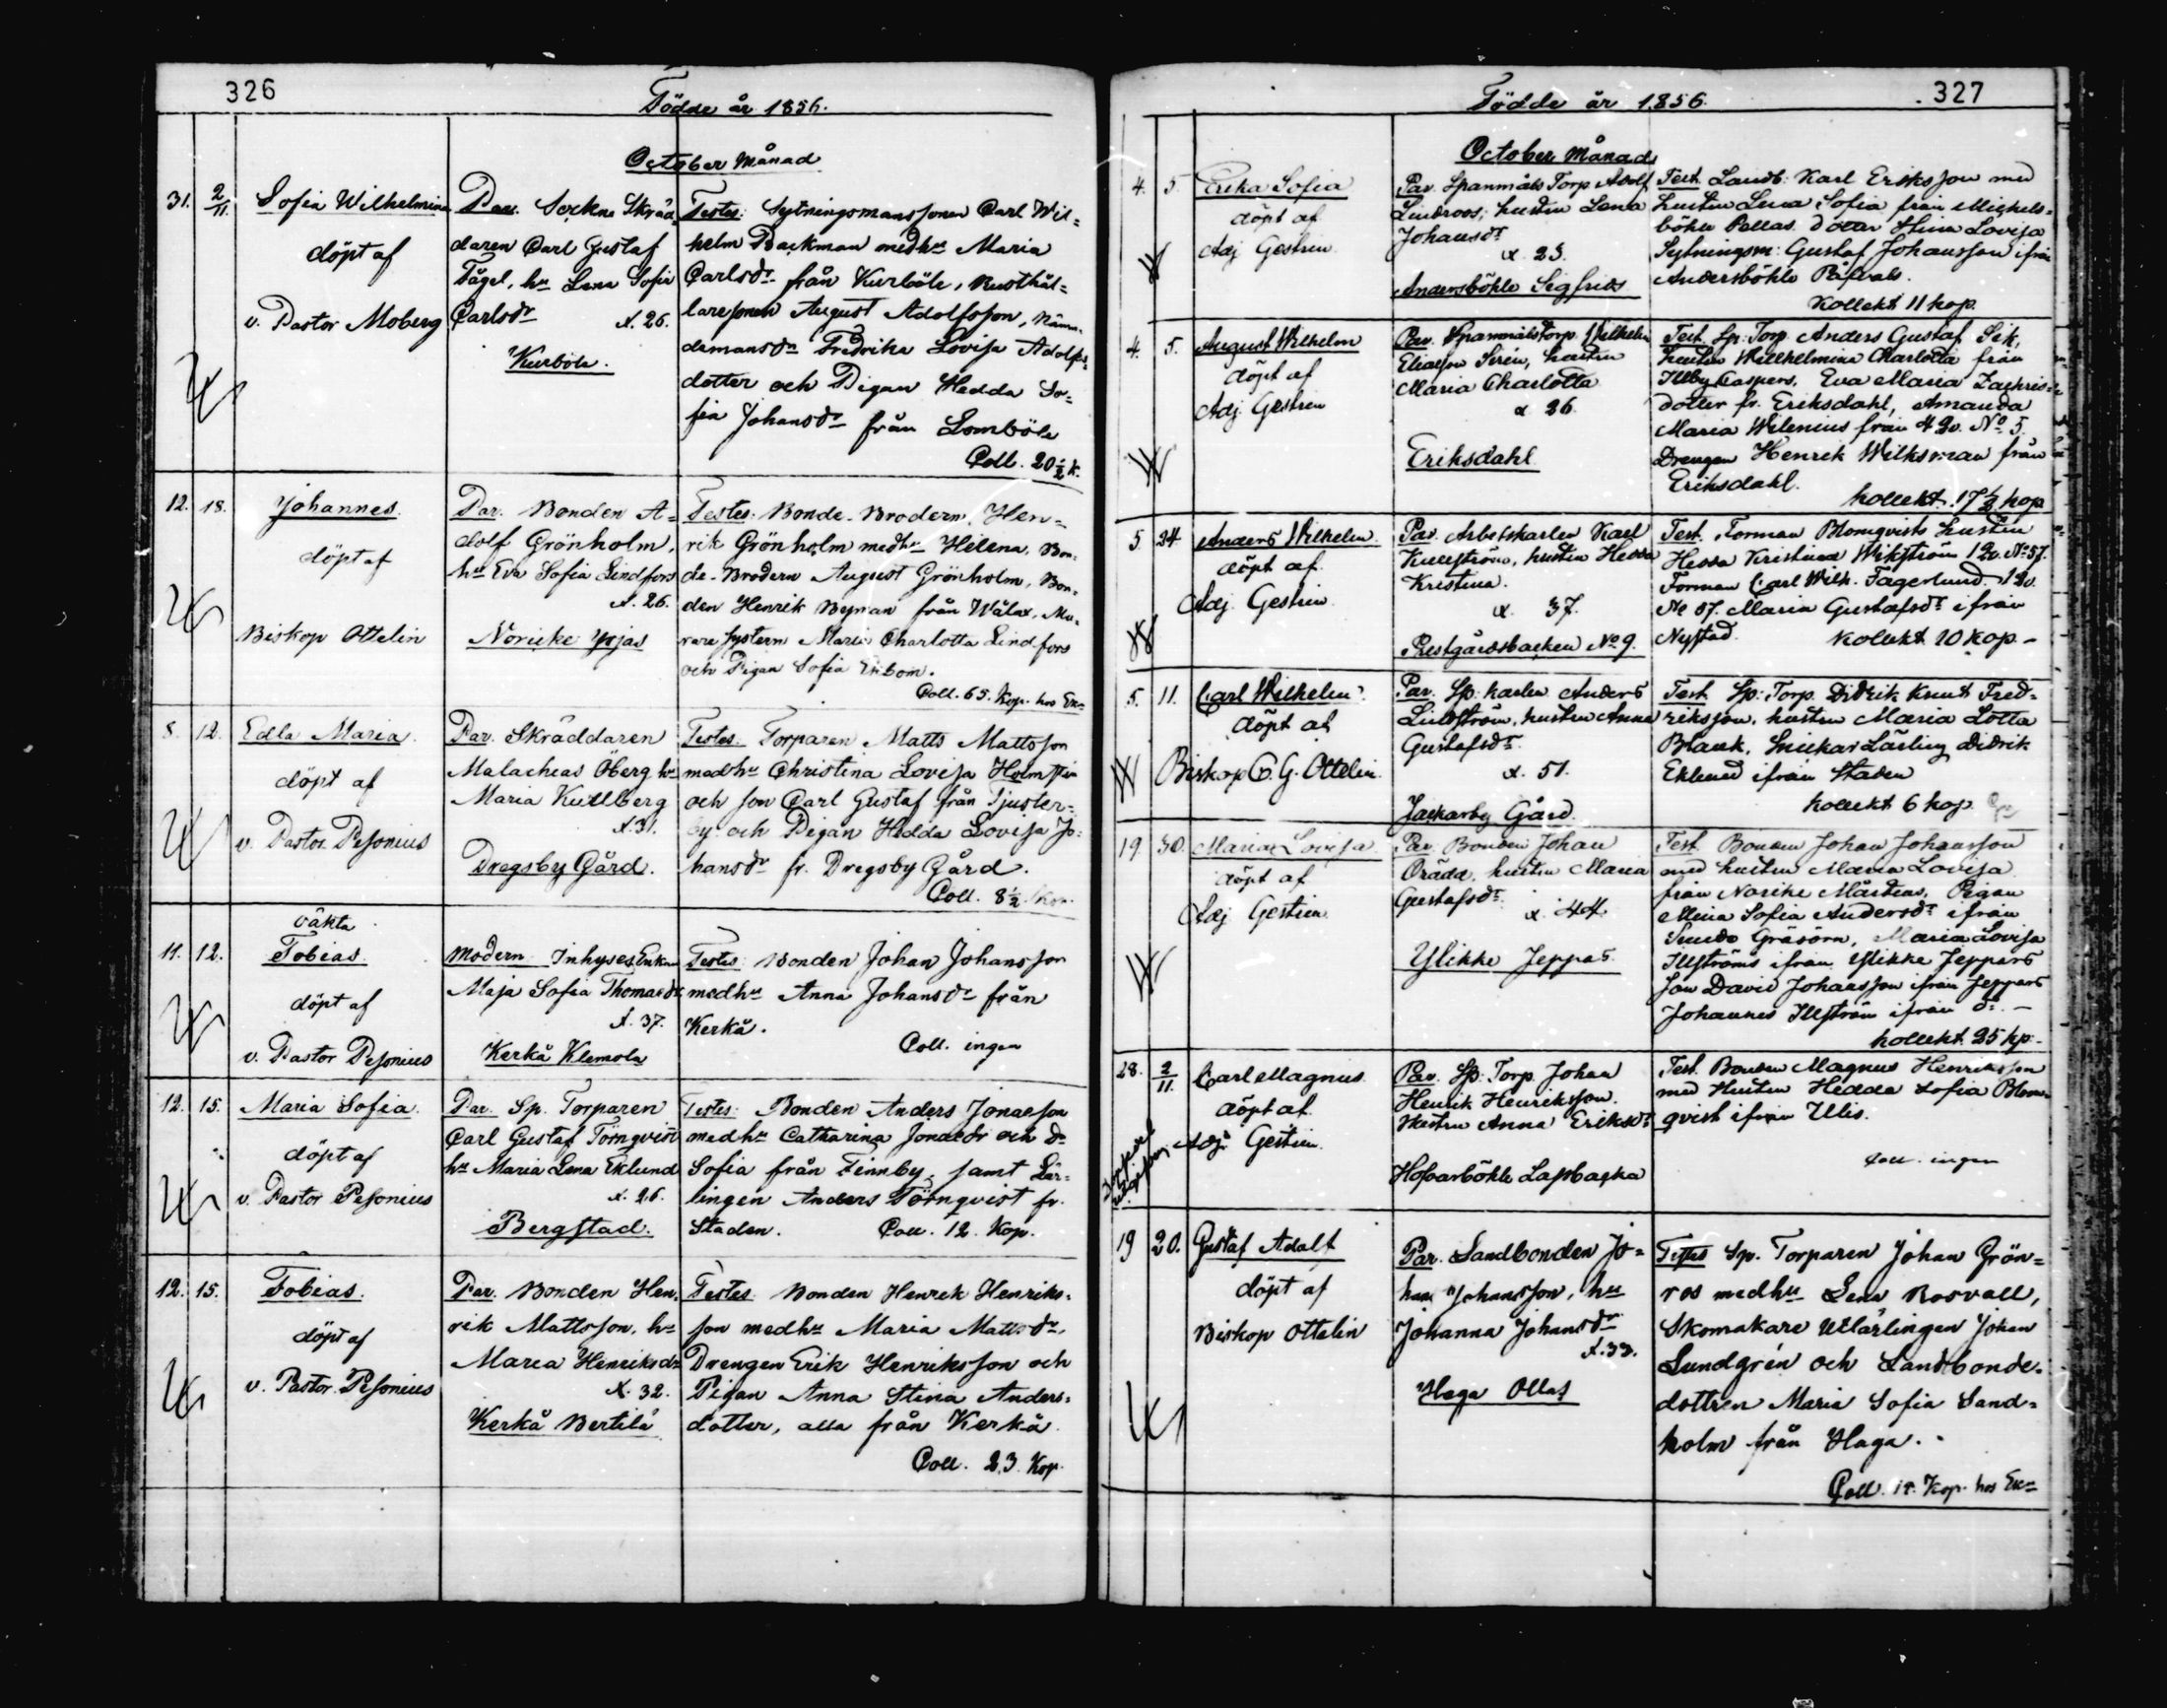 326
Födde år 1856.
October Månad
31. 2/11. Sofia Wilhelmina
döpt af
v. Pastor Moberg
Par. Sockne Skräd-
daren Carl Gustaf
Fågel, hu Lena Sofia
Carlsdr
A. 26.
Kurböle.
Testes: Sytningsmanssonen Carl Wil=
helm Backman med hu Maria
Carlsdr från Kurböle, Rusthål=
laresonen August Adolfsson, Nämn-
demansdn Fredrika Lovisa Adolfs-
dotter och Pigan Hedda So=
fia Johansdr från Lomböle
Coll. 20 1/2 k.
12. 18. Johannes.
döpt af
Biskop Ottelin
Par. Bonden A=
dolf Grönholm,
hu Eva Sofia Lindfors
A. 26.
Norike Yrjas
Testes: Bonde-Brodern, Hen=
rik Grönholm med hu Helena, Bon-
de-Brodern August Grönholm, Bon-
den Henrik Byman från Wålax, Mu-
rare systern Maria Charlotta Lindfors
och Pigan Sofia Enbom.
Coll. 65. Kop. hos
8. 12. Edla Maria.
döpt af
v. Pastor Pesonius
Par. Skräddaren
Malachias Öberg hu
Maria Kullberg
A. 31.
Drägsby Gård.
Testes. Torparen Matts Mattsson
med hu Christina Lovisa Holmsten
och son Carl Gustaf från Tjuster-
by och Pigan Hedda Lovisa Jo-
hansdr fr. Drägsby Gård.
Coll. 8 1/2 Kop.
oäkta
11. 12. Tobias.
döpt af
v. Pastor Pesonius
Modern Inhyses Enkan
Maja Sofia Thomasdr
A. 37.
Kerkå Klemola
Testes: Bonden Johan Johansson
med hu Anna Johansdr från
Kerkå.
Coll. ingen
12. 15. Maria Sofia.
döpt af
v. Pastor Pesonius
Par. Sp. Torparen
Carl Gustaf Törnqvist
hu Maria Lena Eklund
A. 26.
Bergstad.
Testes: Bonden Anders Jonasson
med hu Catharina Jonasdr och dr
Sofia från Finnby, samt Lär-
lingen Anders Törnqvist fr.
Staden. Coll. 12. Kop.
12. 15. Tobias.
döpt af
v. Pastor Pesonius
Par. Bonden Hen-
rik Mattsson, hu
Maria Henriksdr
A. 32.
Kerkå Bertilä
Testes. Bonden Henrik Henriks-
son med hu Maria Mattsdr,
Drengen Erik Henriksson och
Pigan Anna Stina Anders-
dotter, alla från Kerkå
Coll. 23. Kop.
327
Födde år 1856.
October Månad
4. 5. Erika Sofia
döpt af
Adj. Gestrin
Par. Spanmåls Torp. Adolf
Lindroos, hustru Lena
Johansdr
A. 23.
Andersböhle Sigfrids
Test. Landb. Karl Eriksson med
hustru Lena Sofia från Michels=
böhle Pellas. dotter Stina Lovisa
Sytningsm. Gustaf Johansson ifrån
Andersböhle
Kollekt 11 kop
4. 5. August Wilhelm
döpt af
Adj. Gestrin
Par. Spanmålstorp. Wilhelm
Eliasson Siren, hustru
Maria Charlotta
A 26
Eriksdahl
Test. Sp. Torp. Anders Gustaf Sik,
hustru Wilhelmina Charlotta från
Illby Caspers, Eva Maria Zachris-
dotter fr. Eriksdahl, Amanda
Maria Wilenius från 4 Qv. No 5.
Drengen Henrik Wiksman från
Eriksdahl.
kollekt. 17 1/2 kop
5 24 Anders Wilhelm.
döpt af
Adj. Gestrin
Par. Arbetskarlen Karl
Kullström, hustru Hedda
Kristina.
A. 37.
Prestgårdsbacken No 9.
Test. Forman Blomqvists hustru
Hedda Kristina Wikström 1 Qv. No 57.
Forman Carl Wilh. Fagerlund. 1 Qv.
No 57. Maria Gustafsdr ifrån
Nystad. Kollekt 10 kop -
5. 11. Carl Wilhelm.
döpt af
Biskop C. G. Ottelin
Par. Sp. karlen Anders
Lindström, hustru Anna
Gustafsdr
A. 51.
Jackarby Gård.
Test. Sp. Torp. Didrik Knut Fred-
riksson, hustru Maria Lotta
Blank, Snickar Lärling Didrik
Eklund ifrån Staden
kollekt 6 kop
19. 30. Maria Lovisa
döpt af
Adj Gestrin
Par. Bonden Johan
Orädd, hustru Maria
Gustafsdr
A. 44
Ylikke Jeppas
Test. Bonden Johan Johansson
med hustru Maria Lovisa
från Norike Mårtens, Pigan
Mina Sofia Andersdr ifrån
Sundö Gråsörn, Maria Lovisa
Illströms ifrån Ylikke Jeppars
Son David Johansson ifrån Jeppars
Johannes Illström ifrån do. -
kollekt 25 kp.
28. 2/11. Carl Magnus
döpt af
Adj. Gestrin
Par. Sp. Torp. Johan
Henrik Henriksson.
Hustru Anna Eriksdr
Hofvarböhle Lassbacka
Test. Bonden Magnus Henriksson
med Hustru Hedda Sofia Blom-
qvist ifrån Ullis.
Coll. ingen
19 20. Gustaf Adolf
döpt af
Biskop Ottelin
Par. Landbonden Jo=
han Johansson, hu
Johanna Johansdr
A. 33.
Haga Ollas
Testes Sp. Torparen Johan Grön=
ros med hu Lena Rosvall,
Skomakare Utlärlingen Johan
Lundgrén och Landbonde-
dottren Maria Sofia Sand=
holm från Haga.
Coll. Kop. hos